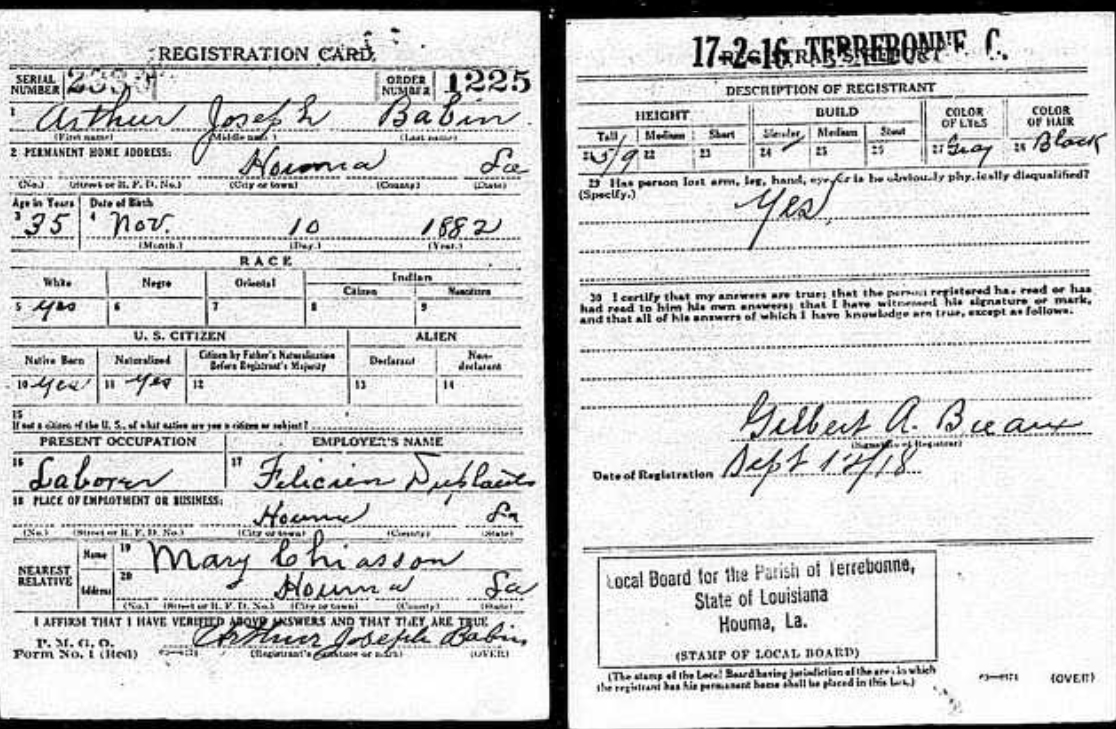 REGISTRATION CARD
SERIAL NUMBER ORDER NUMBER 1225
1 Arthur Joseph Babin
(First name) (Middle name) (Last name)
2 PERMANENT HOME ADDRESS:
Houma La
(No.) (Street or R. F. D. No.) (City or town) (County) (State)
Age in Years Date of Birth
3 35 4 Nov. 10 1882
(Month.) (Day.) (Year.)
RACE
White Negro Oriental Indian
Citizen Noncitizen
5 yes 6 7 8 9
U. S. CITIZEN ALIEN
Native Born Naturalized Citizen by Father's Naturalization Before Registrant's Majority Declarant Non-declarant
10 yes 11 yes 12 13 14
15
If not a citizen of the U. S., of what nation are you a citizen or subject?
PRESENT OCCUPATION EMPLOYER'S NAME
16 Laborer 17 Felicien
18 PLACE OF EMPLOYMENT OR BUSINESS:
Houma La
(No.) (Street or R. F. D. No.) (City or town) (County) (State)
NEAREST RELATIVE Name 19 Mary Chiasson
Address 20 Houma La
(No.) (Street or R. F. D. No.) (City or town) (County) (State)
I AFFIRM THAT I HAVE VERIFIED ABOVE ANSWERS AND THAT THEY ARE TRUE
P. M. G. O.
Form No. 1 (Red) Arthur Joseph Babin
(Registrant's signature or mark) (OVER)
17-2-16 TERREBONNE C.
REGISTRAR'S REPORT
DESCRIPTION OF REGISTRANT
HEIGHT BUILD COLOR OF EYES COLOR OF HAIR
Tall Medium Short Slender Medium Stout
21 5/9 22 23 24 25 26 27 Gray 28 Black
29 Has person lost arm, leg, hand, eye, or is he obviously physically disqualified?
(Specify.) Yes
30 I certify that my answers are true; that the person registered has read or has
had read to him his own answers; that I have witnessed his signature or mark,
and that all of his answers of which I have knowledge are true, except as follows:
Gilbert A.
(Signature of Registrar)
Date of Registration Sept 12/18
Local Board for the Parish of Terrebonne,
State of Louisiana
Houma, La.
(STAMP OF LOCAL BOARD)
(The stamp of the Local Board having jurisdiction of the area in which
the registrant has his permanent home shall be placed in this box.)
(OVER)